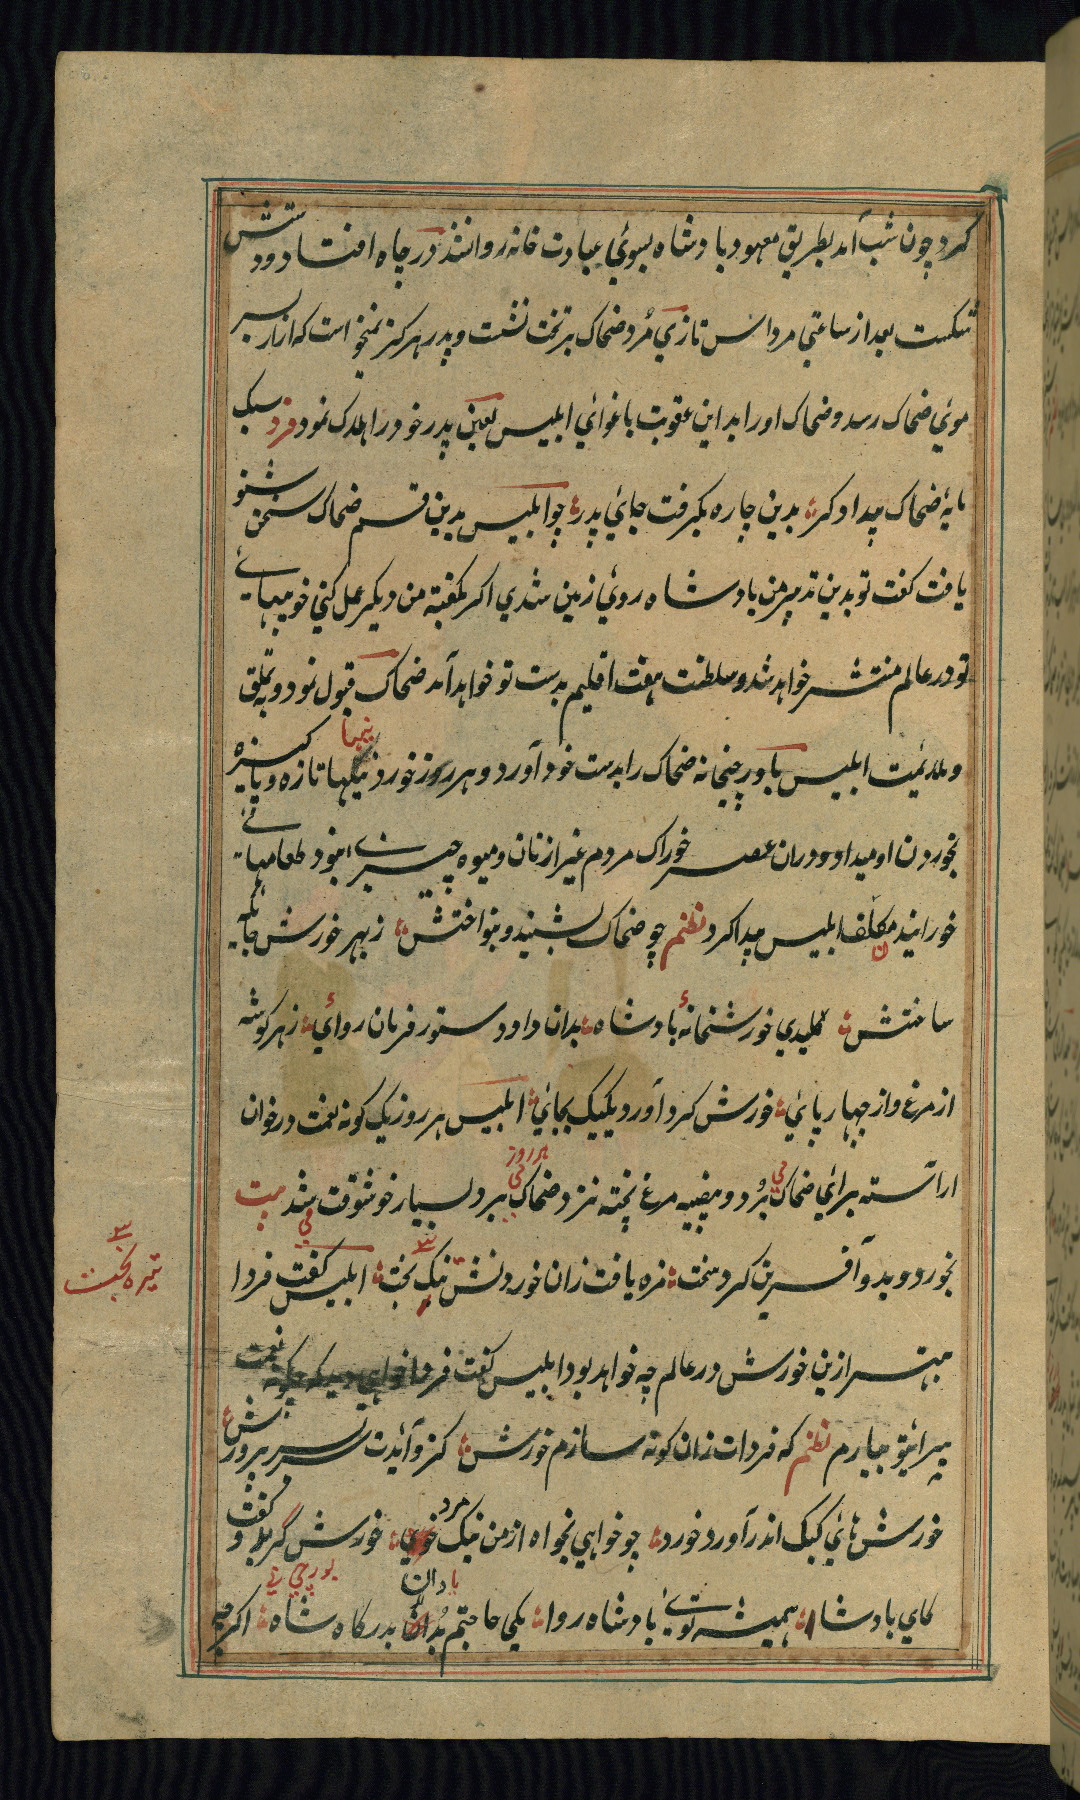 کرد چون شب آمد بطریق معهود بادشاه بسوئی عبادت خانه روانشد در چاه افتاد و دستش
شکست بعد از ساعتی مرداس تازی مُرد ضحاک بر تخت نشست و پدر هرکز نمیخواست که ازار بسر
موئی ضحاک رسد و ضحاک او را بداین عقوبت باغوائی ابلیس لعین پدر خود را هلاک نمود فرد سبک
مایهٔ ضحاک بیداد کر بدین چاره بکرفت جائی پدر چو ابلیس بدین قسم ضحاک سخن شنو
یافت کفت تو بدین تدبیر من بادشاه روئی زمین شدی اکر بکفتهٔ من دیکر عمل کنی خوبیهائے
تو در عالم منتشر خواهد شد و سلطنت هفت اقلیم بدست تو خواهد آمد ضحاک قبول نمود و به تملق
و ملائمت ابلیس باورچیخانه ضحاک را بدست خود آورد و هر روز خوردنیکها تازه و پاکیزه
بخوردن او میداد و دران عصر خوراک مردم غیر از نان و میوه چیزے نبود طعامهائے
خورانید مکلف ابلیس پیدا کرد نظم چو ضحاک بشنید و بنواختش ز بهر خورش جایکه
ساختش کلیدی خورشخانهٔ بادشاه بدان داد دستور فرمان روائی ز هر کوشه
از مرغ و از چهارپائی خورش کرد آورد یکیک بجائی ابلیس هر روز یک کونه نعمت در خوان
اراسته برائی ضحاک می بُرد و بیضیه مرغ پخته نزد ضحاک هر روز می برد بسیار خوشوقت می شد بیت
بخورد و بدو آفرین کرد سخت مزه یافت زان خوردنش نیک بخت ابلیس کفت فردا
تیره بخت
بهتر ازین خورش در عالم چه خواهد بود ابلیس کفت فردا خواهی دید که چکونه نعمت
برائیتو بیارم نظم که فردات زان کونه سازم خورش کزو آئیدت سربسر پرورش
خورش هائی کبک اندر آورد خورد چو خواهی بخواه از من نیک مرد خورش کر کفت
کای بادشاه همیشه توئے بادشاه روا یکی حاجتم بدرکاه شاه اکرچه